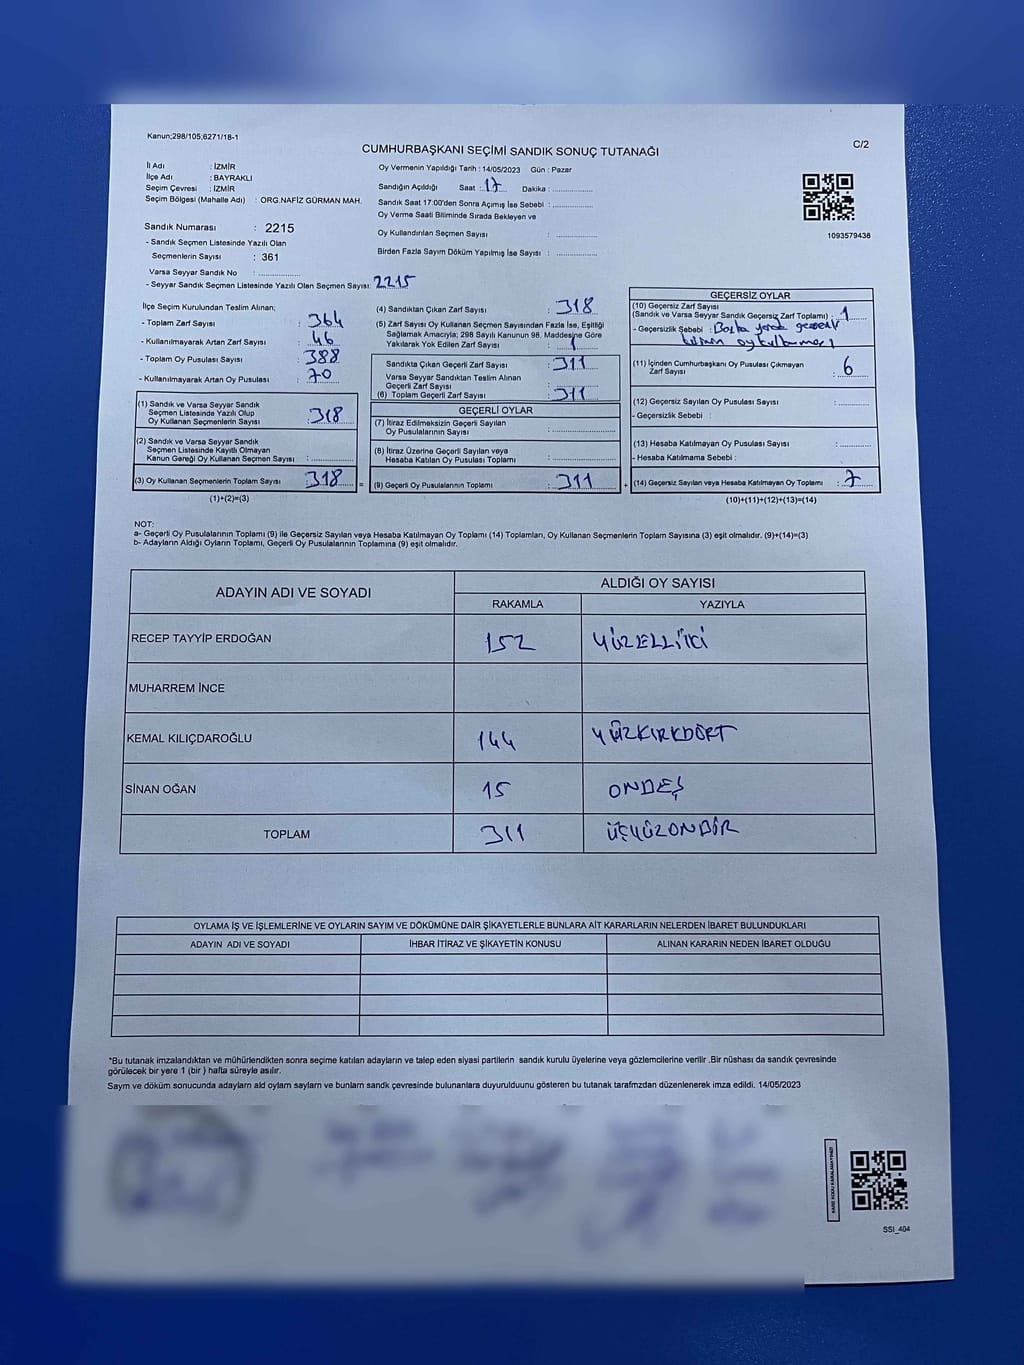 Kanun;298/105;6271/18-1
C/2
CUMHURBAŞKANI SEÇİMİ SANDIK SONUÇ TUTANAĞI
İl Adı : İZMİR
İlçe Adı : BAYRAKLI
Seçim Çevresi : İZMİR
Seçim Bölgesi (Mahalle Adı) : ORG.NAFİZ GÜRMAN MAH.
Sandık Numarası : 2215
- Sandık Seçmen Listesinde Yazılı Olan
Seçmenlerin Sayısı : 361
Varsa Seyyar Sandık No :
- Seyyar Sandık Seçmen Listesinde Yazılı Olan Seçmen Sayısı: 2215
Oy Vermenin Yapıldığı Tarih : 14/05/2023 Gün : Pazar
Sandığın Açıldığı Saat : 17 Dakika :
Sandık Saat 17:00'den Sonra Açımış İse Sebebi :
Oy Verme Saati Bitiminde Sırada Bekleyen ve
Oy Kullandırılan Seçmen Sayısı :
Birden Fazla Sayım Döküm Yapılmış İse Sayısı :
1093579436
İlçe Seçim Kurulundan Teslim Alınan;
- Toplam Zarf Sayısı : 364
- Kullanılmayarak Artan Zarf Sayısı : 46
- Toplam Oy Pusulası Sayısı : 388
- Kullanılmayarak Artan Oy Pusulası : 70
(1) Sandık ve Varsa Seyyar Sandık
Seçmen Listesinde Yazılı Olup
Oy Kullanan Seçmenlerin Sayısı : 318
(2) Sandık ve Varsa Seyyar Sandık
Seçmen Listesinde Kayıtlı Olmayan
Kanun Gereği Oy Kullanan Seçmen Sayısı :
(3) Oy Kullanan Seçmenlerin Toplam Sayısı : 318 =
(1)+(2)=(3)
(4) Sandıktan Çıkan Zarf Sayısı : 318
(5) Zarf Sayısı Oy Kullanan Seçmen Sayısından Fazla İse, Eşitliği
Sağlamak Amacıyla; 298 Sayılı Kanunun 98. Maddesine Göre
Yakılarak Yok Edilen Zarf Sayısı : 1
Sandıkta Çıkan Geçerli Zarf Sayısı : 311
Varsa Seyyar Sandıktan Teslim Alınan
Geçerli Zarf Sayısı :
(6) Toplam Geçerli Zarf Sayısı : 311
GEÇERLİ OYLAR
(7) İtiraz Edilmeksizin Geçerli Sayılan
Oy Pusulalarının Sayısı :
(8) İtiraz Üzerine Geçerli Sayılan veya
Hesaba Katılan Oy Pusulası Toplamı :
(9) Geçerli Oy Pusulalarının Toplamı : 311 +
GEÇERSİZ OYLAR
(10) Geçersiz Zarf Sayısı
(Sandık ve Varsa Seyyar Sandık Geçersiz Zarf Toplamı) : 1
- Geçersizlik Sebebi : Başka
(11) İçinden Cumhurbaşkanı Oy Pusulası Çıkmayan
Zarf Sayısı : 6
(12) Geçersiz Sayılan Oy Pusulası Sayısı :
- Geçersizlik Sebebi :
(13) Hesaba Katılmayan Oy Pusulası Sayısı :
- Hesaba Katılmama Sebebi :
(14) Geçersiz Sayılan veya Hesaba Katılmayan Oy Toplamı : 7
(10)+(11)+(12)+(13)=(14)
NOT:
a- Geçerli Oy Pusulalarının Toplamı (9) ile Geçersiz Sayılan veya Hesaba Katılmayan Oy Toplamı (14) Toplamları, Oy Kullanan Seçmenlerin Toplam Sayısına (3) eşit olmalıdır. (9)+(14)=(3)
b- Adayların Aldığı Oyların Toplamı, Geçerli Oy Pusulalarının Toplamına (9) eşit olmalıdır.
ADAYIN ADI VE SOYADI
ALDIĞI OY SAYISI
RAKAMLA YAZIYLA
RECEP TAYYİP ERDOĞAN 152 YÜZELLİİKİ
MUHARREM İNCE
KEMAL KILIÇDAROĞLU 144 YÜZKIRKDÖRT
SİNAN OĞAN 15 ONBEŞ
TOPLAM 311 ÜÇYÜZONBİR
OYLAMA İŞ VE İŞLEMLERİNE VE OYLARIN SAYIM VE DÖKÜMÜNE DAİR ŞİKAYETLERLE BUNLARA AİT KARARLARIN NELERDEN İBARET BULUNDUKLARI
ADAYIN ADI VE SOYADI İHBAR İTİRAZ VE ŞİKAYETİN KONUSU ALINAN KARARIN NEDEN İBARET OLDUĞU
*Bu tutanak imzalandıktan ve mühürlendikten sonra seçime katılan adayların ve talep eden siyasi partilerin sandık kurulu üyelerine veya gözlemcilerine verilir .Bir nüshası da sandık çevresinde
görülecek bir yere 1 (bir ) hafta süreyle asılır.
Saym ve döküm sonucunda adaylarn ald oylarn saylarn ve bunlarn sandk çevresinde bulunanlara duyurulduunu gösteren bu tutanak tarafmzdan düzenlenerek imza edildi. 14/05/2023
KARE KODU KARALAMAYINIZ!
SSI_404